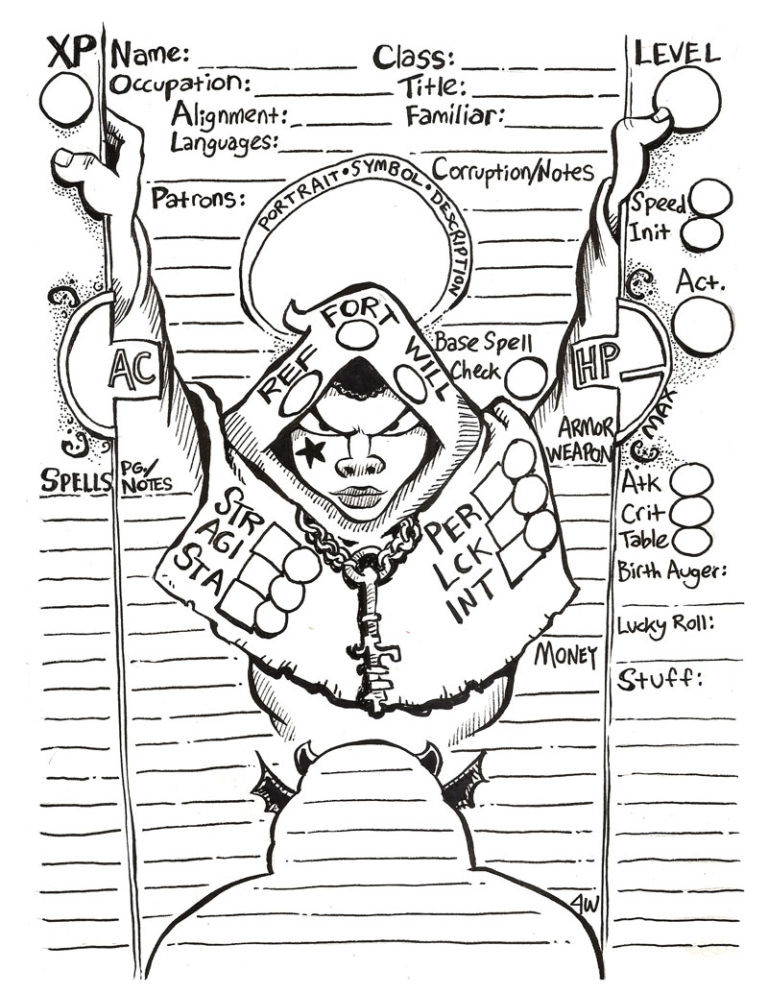 XP
Name:
Class:
LEVEL
Occupation:
Title:
Alignment:
Familiar:
Languages:
Corruption/Notes
Patrons:
PORTRAIT • SYMBOL • DESCRIPTION
Speed
Init
Act.
REF FORT WILL
Base Spell
Check
AC
HP
MAX
ARMOR
WEAPON
SPELLS
PG./
NOTES
Atk
Crit
Table
STR
AGI
STA
PER
LCK
INT
Birth Auger:
Lucky Roll:
MONEY
Stuff:
JW